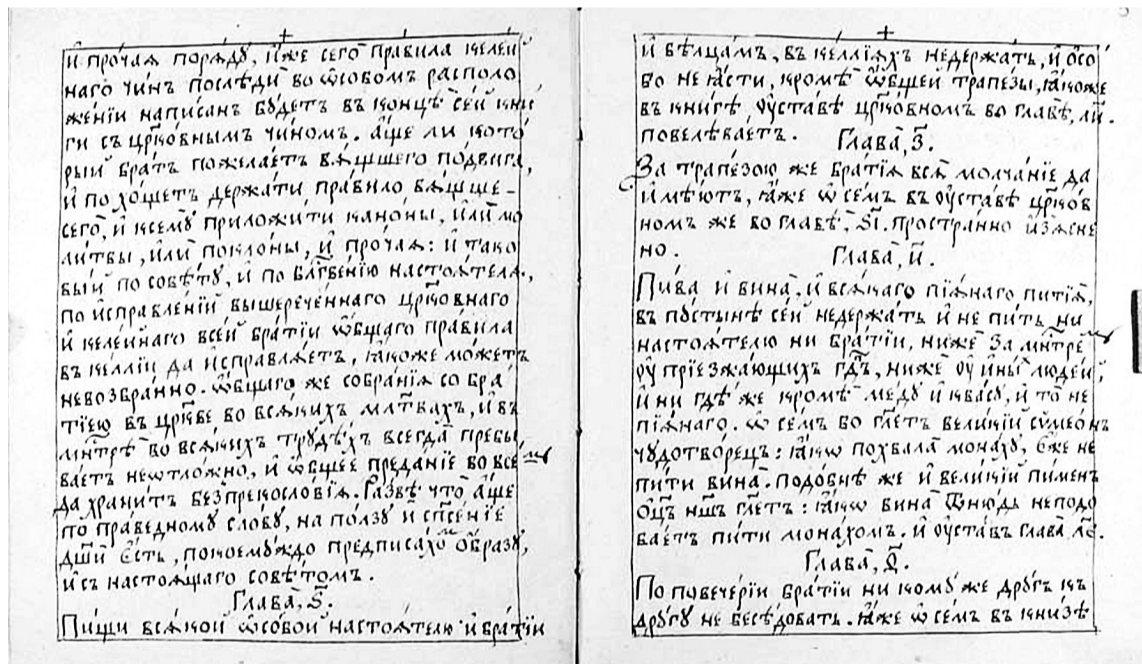 и҆ про́чаѧ порѧ́дꙋ, и҆́же сегѡ̀ пра́вила келе́й
наго чи́нъ послѣдѝ во ѡ҆со́бомъ располо
же́нїи напи́санъ бꙋ́детъ въ концѣ̀ се́й кни́
ги съ цр҃ко́внымъ чи́номъ. а҆́ще ли кото́
рый бра́тъ пожела́етъ вѧ́щшего по́двига,
и҆ похо́щетъ держа́ти пра́вило вѧ́щше-
сегѡ̀, и҆ ксемꙋ̀ приложи́ти кано́ны, и҆лѝ мо
ли́твы, и҆лѝ покло́ны, и҆ про́чаѧ: и҆ тако
вы́й по совѣ́тꙋ, и҆ по блг҃ве́нїю настоѧ́телѧ,
по и҆справле́нїи вышерече́ннаго цр҃ко́внаго
и҆ келе́йнаго все́й бра́тїи ѡ҆́бщаго пра́вила
въ ке́ллїи да и҆справлѧ́етъ, ꙗ҆́коже мо́жетъ
невозбра́нно. ѡ҆́бщаго же собра́нїѧ со бра́
тїею въ цр҃кве во всѧ́кихъ мл҃твахъ, и҆ въ
мн҃трѣ̀ во всѧ́кихъ трꙋдѣ́хъ всегда̀ пребы
ва́етъ неѿло́жно, и҆ ѡ҆́бщее преда́нїе во все́мъ
да храни́тъ безпрекосло́вїѧ. Ра́звѣ что̀ а҆́ще
по пра́ведномꙋ сло́вꙋ, на по́лзꙋ и҆ сп҃се́нїе
дш҃ѝ є҆́сть, покоемꙋ́ждо предписа́хо́мъ ѻ҆́бразꙋ,
и҆ съ настоѧ́щаго совѣ́томъ.
Глава̀, ѕ҃.
Пи́щи всѧ́кой ѡ҆со́бой настоѧ́телю и҆ бра́тїи
и҆ бѣлца́мъ, въ ке́ллїѧхъ недержа́ть, и҆ ѻ҆со́
бо не ꙗ҆́сти, кромѣ̀ ѡ҆́бщей трапе́зы, ꙗ҆́коже
въ кни́гѣ ᲂу҆ста́вѣ цр҃ко́вномъ во главѣ̀, л҃и.
повелѣва́етъ.
Глава̀, з҃.
За трапе́зою же бра́тїѧ всѧ̀ молча́нїе да
и҆мѣ́ютъ, ꙗ҆́же ѡ҆ се́мъ въ ᲂу҆ста́вѣ цр҃ко́в
номъ же во главѣ̀, ѕ҃і. простра́нно и҆з̾ѧсне
но.
Глава̀, и҃.
Пи́ва и҆ вина̀, и҆ всѧ́каго пїѧ́наго питїѧ̀,
въ пꙋ́стынѣ се́й недержа́ть и҆ не пи́ть, ни
настоѧ́телю ни бра́тїи, нижѐ за мн҃тре́мъ
ᲂу҆ прїезжа́ющихъ гд҃ъ, нижѐ ᲂу҆ и҆ны́хъ люде́й,
и҆ ни гдѣ́ же кромѣ̀ ме́дꙋ и҆ ква́сꙋ, и҆ то̀ не
пїѧ́наго. ѡ҆ се́мъ бо гл҃етъ вели́кїй сѷмео́нъ
чꙋдотво́рецъ: ꙗ҆́кѡ похвала̀ мона́хꙋ, є҆́же не
пи́ти вина̀. Подо́бнѣ же и҆ вели́кїй пи́менъ
ѻ҆ц҃ъ нш҃ъ гл҃етъ: ꙗ҆́кѡ вина̀ ѿню́дь неподо
ба́етъ пи́ти мона́хомъ. и҆ ᲂу҆ста́въ глава̀, л҃є.
Глава̀, ѳ҃.
По повече́рїи бра́тїи ни комꙋ́ же дрꙋ́гъ къ
дрꙋ́гꙋ не бесѣ́довать. ꙗ҆́же ѡ҆ се́мъ въ кни́зѣ